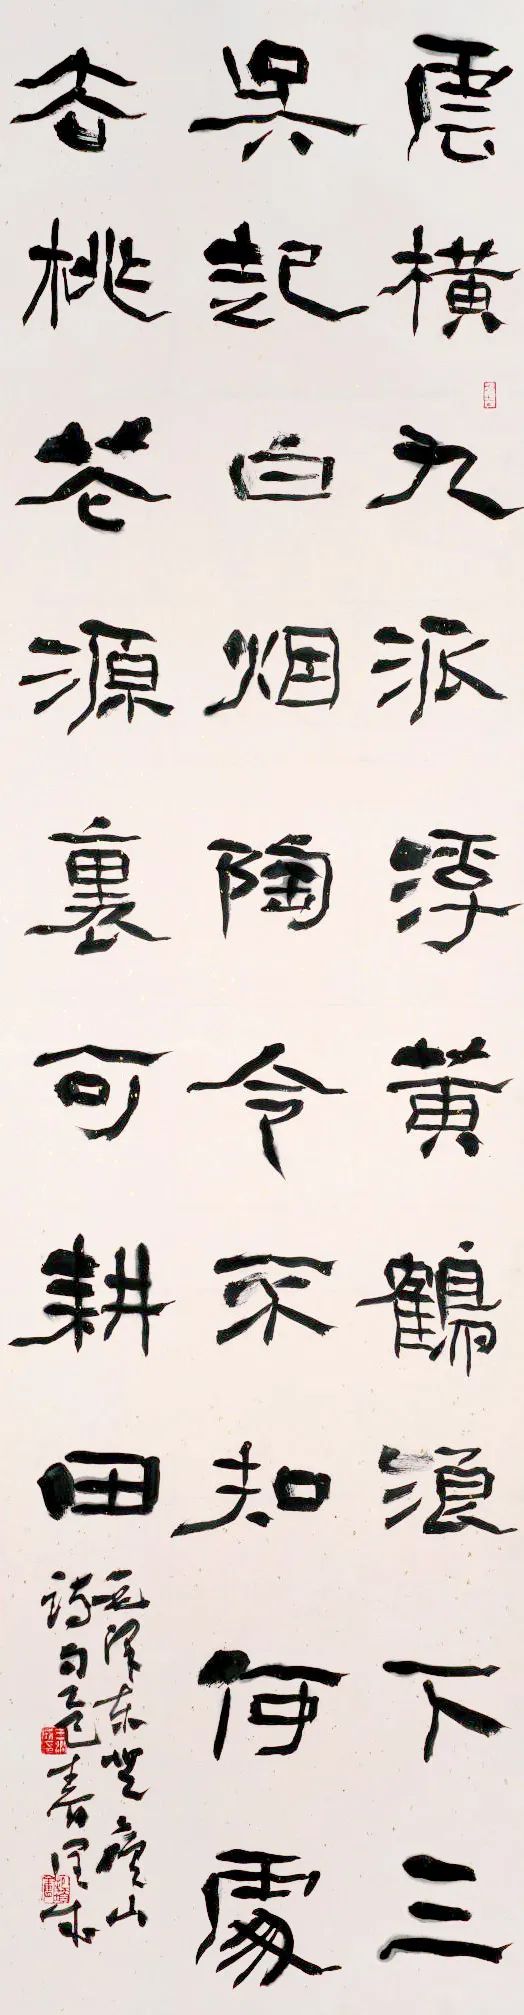 雲橫九派浮黄鶴浪下三
吴起白烟陶令不知何處
去桃花源裏可耕田
毛澤東登廬山
詩句乙巳春澤成